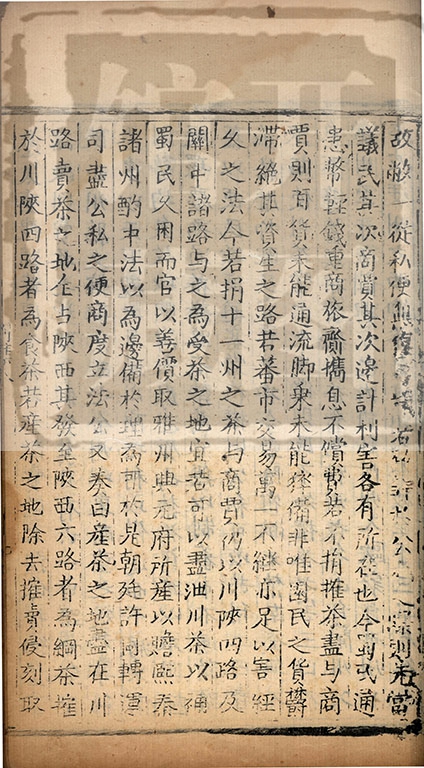 改敝一從私便無復
議民其次商賈其次邊計利害各有所在也今蜀民通
患幣輕錢重商旅齎攜息不償費若不捐榷茶盡與商
賈則百貨未能通流脚乘未能猝備非唯園民之貨欝
滯絶其資生之路若蕃市交易萬一不継亦足以害經
久之法今若捐十一州之茶與商賈仍以川陜四路及
關中諸路與之為受茶之地宜若可以盡泄川茶以補
蜀民乆困而官以善價取雅州興元府所産以贍熙秦
諸州酌中法以為邊備於理為可於是朝廷許
司盡公私之便商度立法公又奏曰産茶之地盡在川
路賣茶之地全占陜西其發至陜西六路者為綱茶榷
於川陜四路者為食茶若産茶之地除去榷賣侵刻取